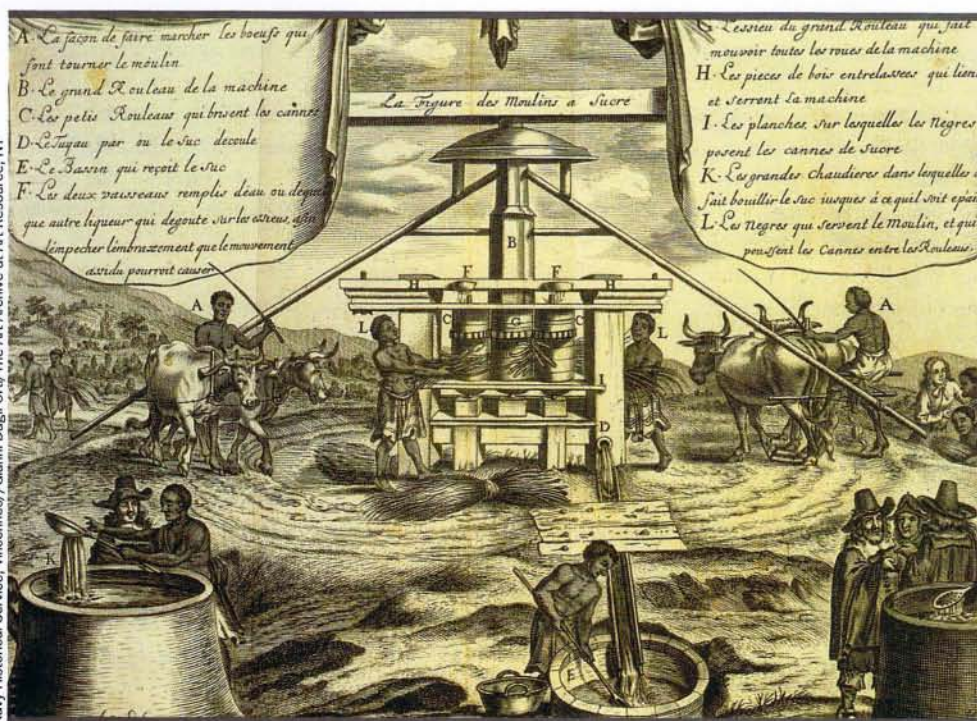 A. La façon de faire marcher les boeufs qui
font tourner le moulin
B. Le grand Rouleau de la machine
C. Les petis Rouleaus qui brisent les cannes
D. Le Tuyau par ou le suc decoule
E. Le Bassin qui reçoit le suc
F. Les deux vaisseaus remplis deau ou de quel
que autre liqueur qui degoute sur les essieus, afin
dempecher lembrazement que le mouvement
assidu pourroit causer
La Figure des Moulins a Sucre
G. Lessieu du grand Rouleau qui fait
mouvoir toutes les roues de la machine
H. Les pieces de bois entrelassees qui tienn
et serrent la machine
I. Les planches, sur lesquelles les Negres
posent les cannes de sucre
K. Les grandes chaudieres dans lesquelles
fait bouillir le suc iusques à ce quil soit epai
L. Les Negres qui servent le Moulin, et qui
poussent les Cannes entre les Rouleaus.
F F
B
H H
A A
L C G C L
I
D
K
E
Navy Historical Service, Vincennes, / Gianni Dagli Orti/ The Art Archive at Art Resource, NY